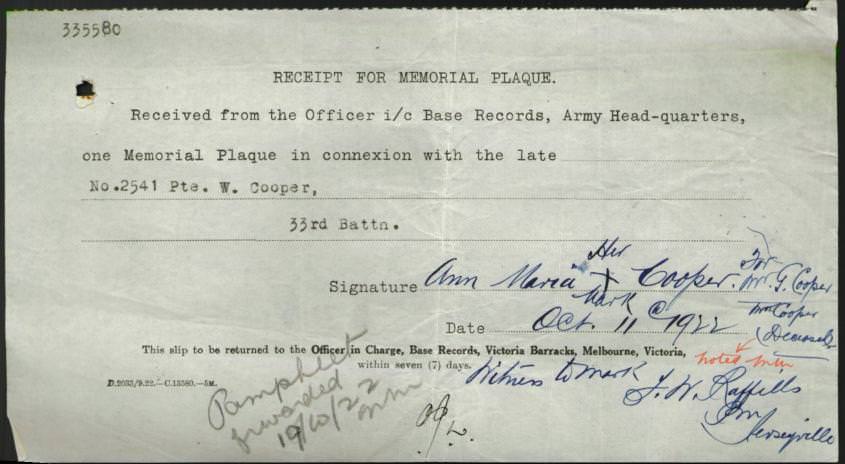 335580
RECEIPT FOR MEMORIAL PLAQUE.
Received from the Officer i/c Base Records, Army Head-quarters,
one Memorial Plaque in connexion with the late
No.2541 Pte. W. Cooper,
33rd Battn.
Her
Signature Ann Maria X Cooper. For Mr. G. Cooper
Mark
Mr Cooper
Deceased
Date Oct. 11 @ 1922
This slip to be returned to the Officer in Charge, Base Records, Victoria Barracks, Melbourne, Victoria,
within seven (7) days.
noted
Witness to mark
D.2033/9.22.—C.13580.—5M.
F. W. Raffills
PM
Jerseyville
Pamphlet
forwarded
19/10/22